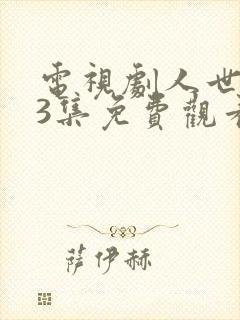 電視劇人世
3集免費觀看
薩伊赫